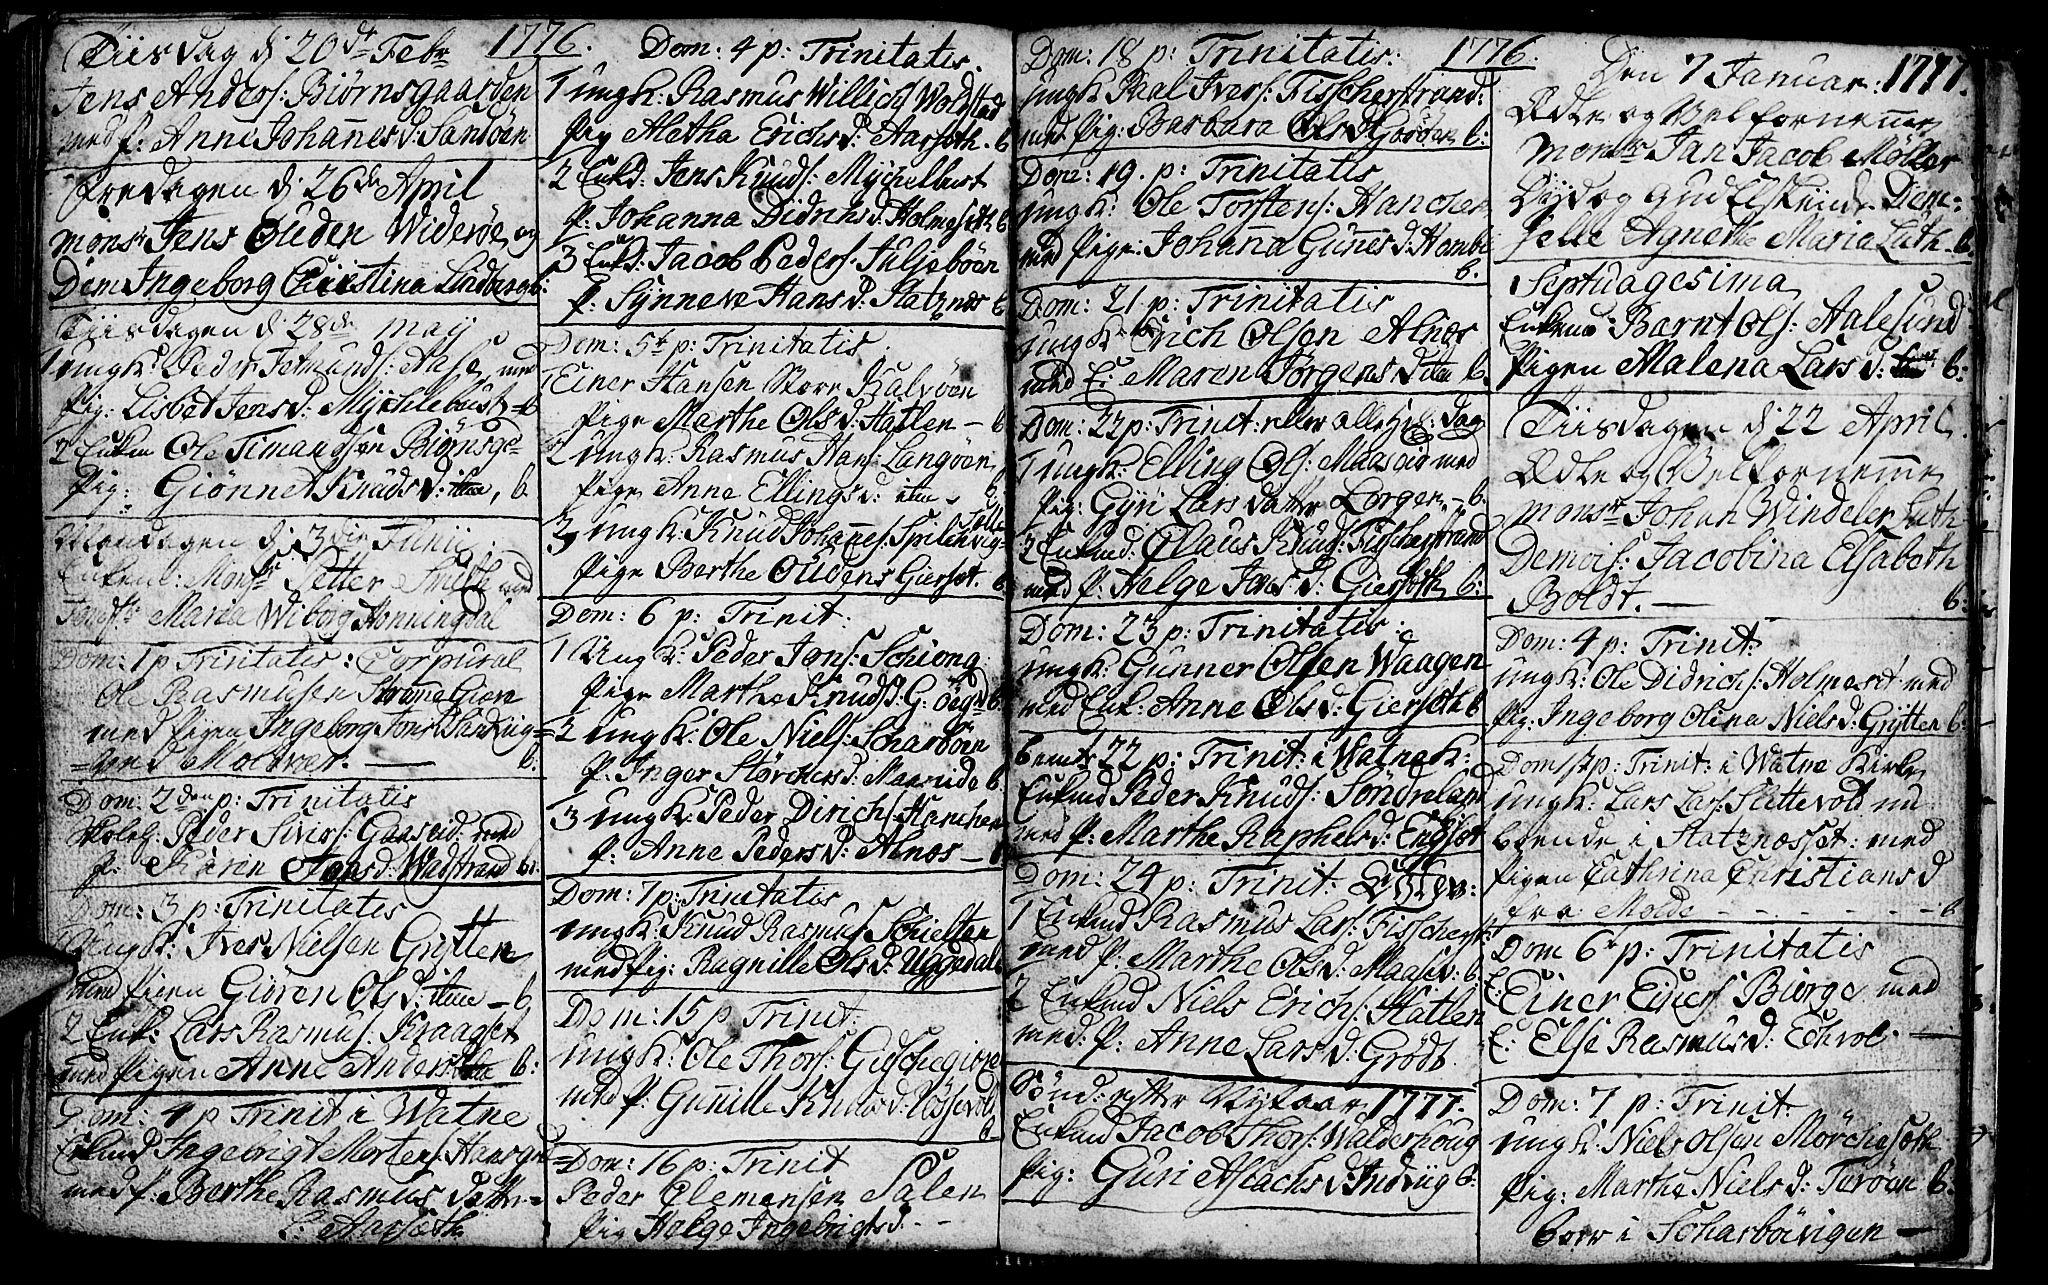 Tiisdag d 20de Febr 1776.
Jens Anders: Biørnsgaarden
med p. Anne Johannes d: Sandøen
Fredagen d 26de April
Monsr Jens Ouden Widerøe og
Dem Ingeborg Christina Lindberg b:
Tiisdagen d 28de May
1 ungk: Peder Jetmunds: Aase med
Pig: Lisbet Jens d: Mychlebust b
2 Enkm Ole Timandsen Biørnsge=
Pig: Giønnet Knuds d: item, b.
Mandagen d 3die Junii.
Enkml: Monsr Petter Smith med
Maria Wiborg Honningdal
Dom: 1 p Trinitatis: Corpural
Ole Rasmusen Strømme Gien
med pigen Ingeborg Jons d:
Molvær. — b.
Dom: 2den p: Trinitatis
Peder Sivers: Gaaseid med
p. Karin Jans d: Wadstrand b:
Dom: 3 p: Trinitatis
Ungk: Iver Nielsen Grÿtten
med pigen Giøren Ols d: item - b
2 Enk: Lars Rasmus: Kraagset
med Pigen Anne Anders b:
Dom: 4 p Trinit i Watne
Enkmd Ingebrigt Mortens:
med p. Berthe Rasmus datter
Aarsæth
Dom: 4 p: Trinitatis.
1 ungk: Rasmus Willichs Woldstad
Pig Aletha Erichs d: Aarseth. b
2 Enkd: Jens Knuds: Mychelbust
p. Johanna Didrichs d: Holmeseth b
3 Enkd: Jacob Peders: Julsebøen
p. Synneve Hans d: Statznes b
Dom: 5te p: Trinitatis.
1 Einer Hansen Store Kalvøen
Pige Marthe Ols d: Hatlen - b
2 ungk: Rasmus Hans: Langøen
Pige Anne Ellings d: item - b
3 ungk: Knud Johannes: Spilkevig
Pige Berthe Oudens Gierset. b
Dom: 6 p: Trinit:
1 Ungk: Peder Jons: Schiong
Pige Marthe Knuds d. b
2 ungk: Ole Niels: Scharbøen
p. Inger Størchers d: b
3 ungk: Peder Dirichs: Hanchen
p. Anne Peders d: Alnes - b
Dom: 7 p: Trinitatis
ungk: Knud Rasmus: Schielten
med pig: Ragnille Ols d: Uggedal b
Dom: 15 p Trinit.
ungk: Ole Thors: Gischegiorde
med p: Gunille Knuds d:
b
Dom: 16 p: Trinit
Peder Clemensen Salen
Pig Helge Ingebrigts d. - -
Dom: 18 p: Trinitatis: 1776.
ungk Paal Ivers: Fischerstrand:
med Pig: Barbara Ols d Godøen b:
Dom: 19. p: Trinitatis
ungk: Ole Torstens: Hanchen
med Pige: Johanna Gunnes d:
b.
Dom: 21 p: Trinitatis
ungk: Erich Olsen Alnes
med E: Maren Jørgens d item b.
Dom: 22 p: Trinit: eller alle Hel: dag
1 ungk: Elling Ols: Maaseid med
Pig: Gÿri Lars datter Lorgen - b.
2 Enkmd: Claus Knuds: Fischerstrand
med p: Helge Ives d: Gierseth b:
Dom: 23 p: Trinitatis:
ungk: Gunner Olsen Waagen
med Enk: Anne Ols d: Gierseth b
bemte 22 p: Trinit: i Watne k:
Enkmd Peder Knuds: Søndreland
med p: Marthe Raphels d: Engset
Dom: 24 p: Trinit:
1 Enkmd Rasmus Lars: Fischerst
med p. Marthe Ols d: Maaseid: b
2 Enkmd Niels Erichs: Hatlen
med: p. Anne Lars d: Grødt
Sønd: efter Nÿtaar 1777.
Enkmd Jacob Thors: Walderhoug
Pig: Guri Aslachs d Indvig b.
Den 7 Januar. 1777.
Ædle og Velfornemme
Monsr Jan Jacob Møller
Dyd og gudElskende Dem=
selle Agnethe Maria Luth - b
Septuagesima
Enkmd: Barnt Ols: Aalesund
Pigen Malena Lars d: b:
Tiisdagen d 22 April
Ædle og Velfornemme
Monsr Johan Windeler Luth
Demois: Jacobina Elsabeth
Boldt. — b:
Dom: 4 p: Trinit:
ungk: Ole Didrichs: Holmeset med
Pig: Ingeborg Olina Niels d: Grÿtten b:
Dom p: Trinit: i Watne Kirke
ungk: Lars Lars: Slettevold nu
boende i Statznesset: med
Pigen Cathrina Christians d
fra Molde - - - - - - b
Dom 6te p: Trinitatis
E: Einer Einers: Biørge med
E: Else Rasmus d: Echvol: —
Dom: 7 p: Trinit:
ungk: Niels Olsen Mørcheseth
Pig: Marthe Niels d: Terøen b:
boer i Scharbøevigen —